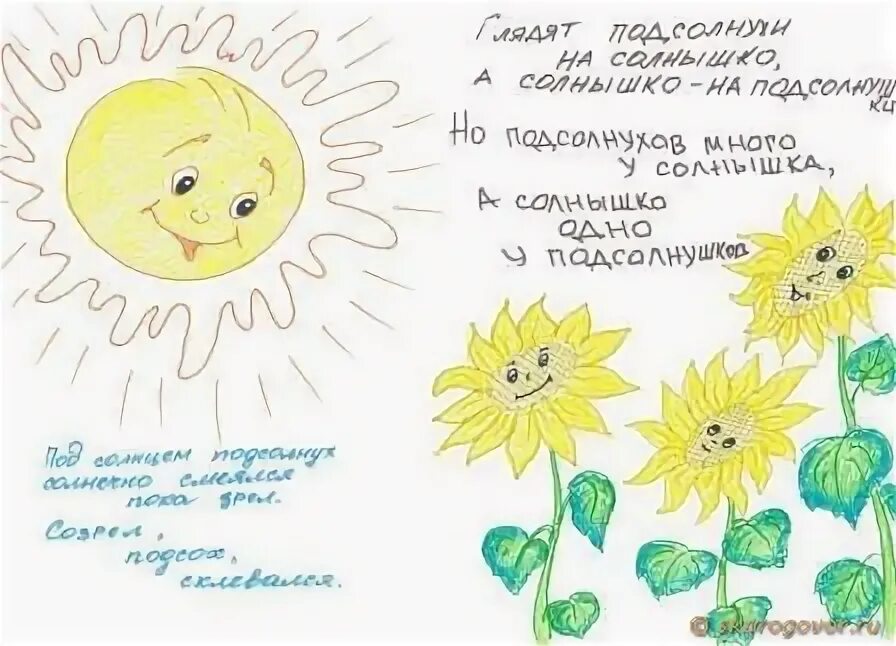 Глядят подсолнухи
на солнышко,
А солнышко - на подсолнуш
ки
Но подсолнухов много
у солнышка,
А солнышко
одно
у подсолнушков
Под солнцем подсолнух
солнечно смеялся
пока зрел.
Созрел,
подсох,
склевался.
© skorogovor.ru